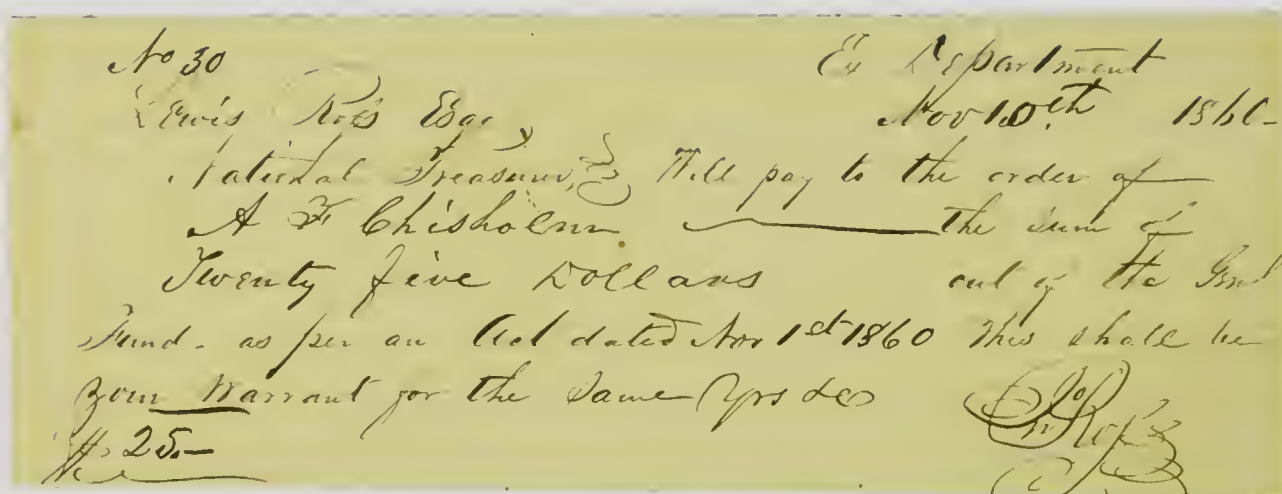 No 30
Ex Department
Lewis Ross Esqr
Nov 10th 1860
National Treasurer, Will pay to the order of
A F Chisholm the sum of
Twenty five Dollars out of the Genl
Fund. as per an Act dated Nov 1st 1860 This shall be
your Warrant for the same Yrs &c
Jno Ross
$ 25.–